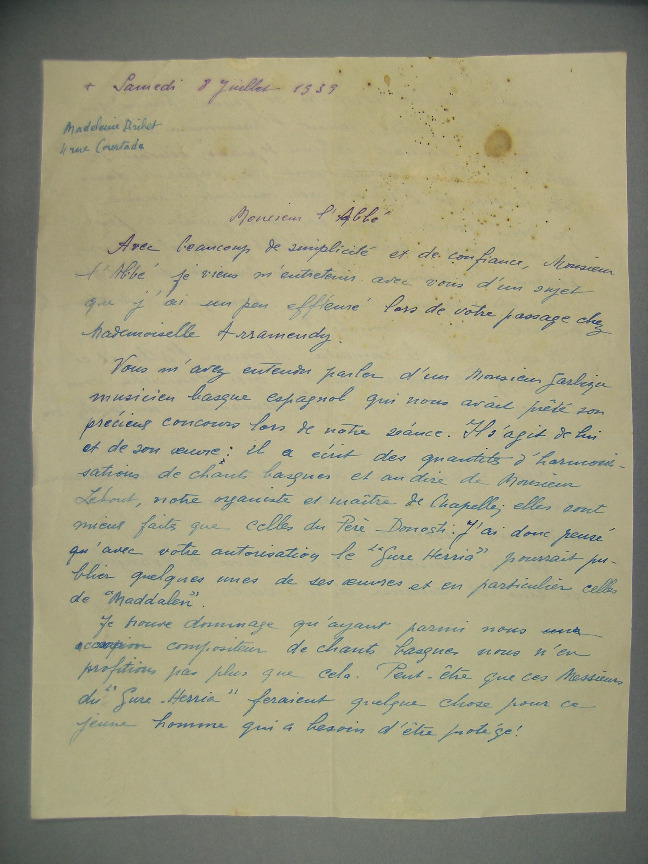 + Samedi 8 Juillet 1939
Madeleine
4 rue Courtade
Monsieur l'Abbé
Avec beaucoup de simplicité et de confiance, Monsieur
l'Abbé je viens m'entretenir avec vous d'un sujet
que j'ai un peu effleuré lors de votre passage chez
Mademoiselle Arramendy.
Vous m'avez entendu parler d'un Monsieur
musicien basque espagnol qui nous avait prêté son
précieux concours lors de notre séance. Il s'agit de lui
et de son œuvre ; il a écrit des quantités d'harmoni-
sations de chants basques et au dire de Monsieur
notre organiste et maître de Chapelle, elles sont
mieux faites que celles du Père Donosti. J'ai donc pensé
qu'avec votre autorisation le "Gure Herria" pourrait pu-
blier quelques unes de ses œuvres et en particulier celles
de "Maddalen".
Je trouve dommage qu'ayant parmi nous
compositeur de chants basques nous n'en
profitions pas plus que cela. Peut-être que ces Messieurs
du "Gure-Herria" feraient quelque chose pour ce
jeune homme qui a besoin d'être protégé!